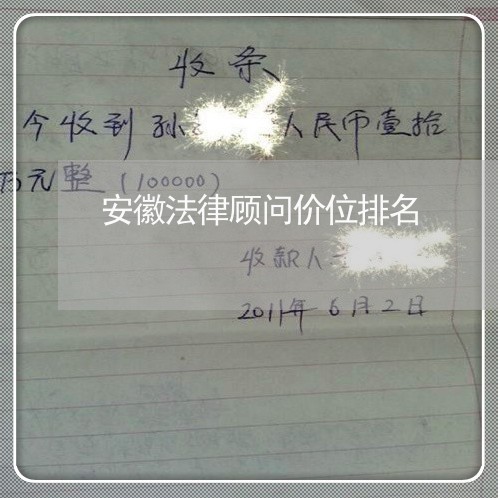 收条
今收到孙人民币壹拾
万元整（100000）
安徽法律顾问价位排名
收款人
2011年6月2日